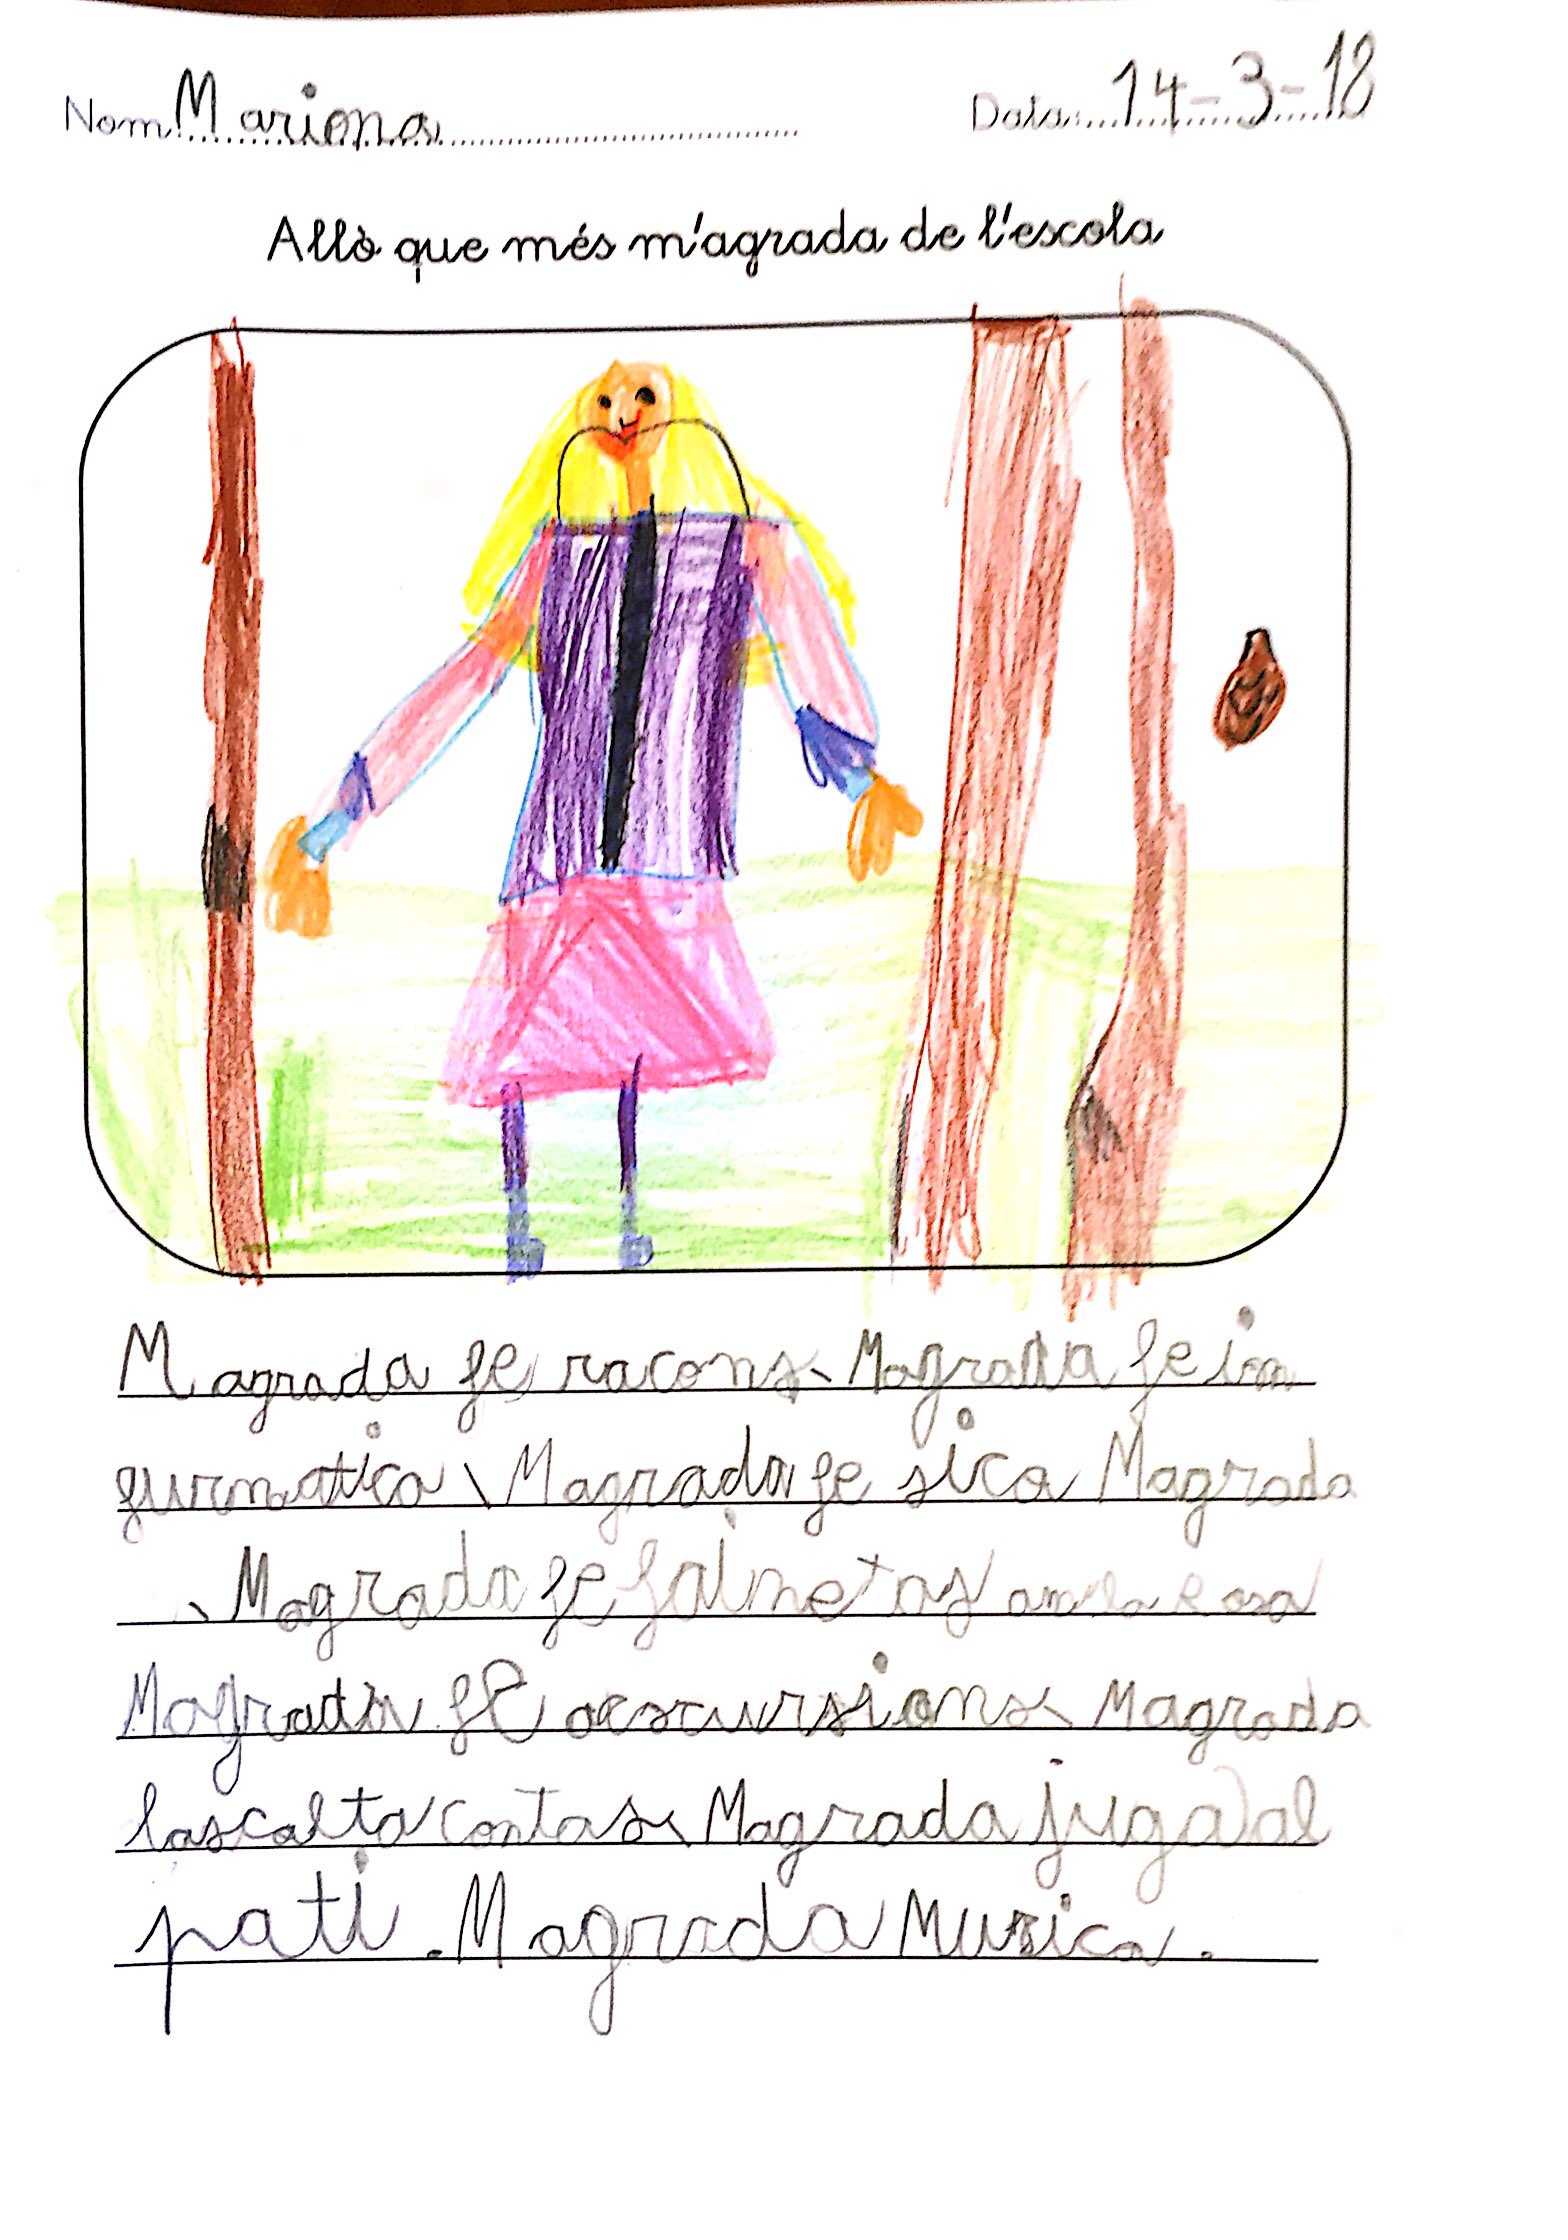 Nom Mariona Data: 14-3-18
Allò que més m'agrada de l'escola
Magrada fe racons. Magrada fe in
furmatica. Magrada fe sica Magrada
. Magrada fe amla Rosa
Magrada fe ecscursions. Magrada
lascalta contas. Magrada juga al
pati. Magrada Musica.